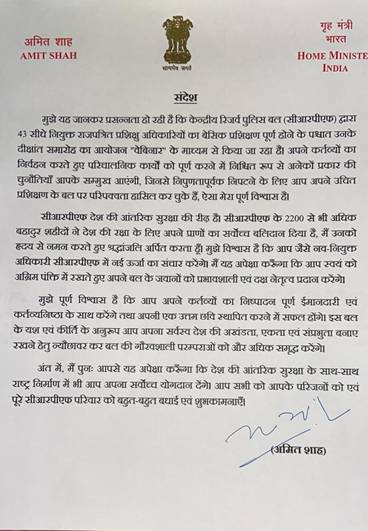 अमित शाह
AMIT SHAH
सत्यमेव जयते
गृह मंत्री
भारत
HOME MINISTE
INDIA
संदेश
मुझे यह जानकर प्रसन्नता हो रही है कि केन्द्रीय रिजर्व पुलिस बल (सीआरपीएफ) द्वारा
43 सीधे नियुक्त राजपत्रित प्रशिक्षु अधिकारियों का बेसिक प्रशिक्षण पूर्ण होने के पश्चात उनके
दीक्षांत समारोह का आयोजन "वेबिनार" के माध्यम से किया जा रहा है। अपने कर्तव्यों का
निर्वहन करते हुए परिचालनिक कार्यों को पूर्ण करने में निश्चित रूप से अनेकों प्रकार की
चुनौतियाँ आपके सम्मुख आएंगी, जिनसे निपुणतापूर्वक निपटने के लिए आप अपने उचित
प्रशिक्षण के बल पर परिपक्वता हासिल कर चुके हैं, ऐसा मेरा पूर्ण विश्वास है।
सीआरपीएफ देश की आंतरिक सुरक्षा की रीढ़ है। सीआरपीएफ के 2200 से भी अधिक
बहादुर शहीदों ने देश की रक्षा के लिए अपने प्राणों का सर्वोच्च बलिदान दिया है, मैं उनको
हृदय से नमन करते हुए श्रद्धांजलि अर्पित करता हूँ। मुझे विश्वास है कि आप जैसे नव-नियुक्त
अधिकारी सीआरपीएफ में नई ऊर्जा का संचार करेंगे। मैं यह अपेक्षा करूँगा कि आप स्वयं को
अग्रिम पंक्ति में रखते हुए अपने बल के जवानों को प्रभावशाली एवं दक्ष नेतृत्व प्रदान करेंगे।
मुझे पूर्ण विश्वास है कि आप अपने कर्तव्यों का निष्पादन पूर्ण ईमानदारी एवं
कर्तव्यनिष्ठा के साथ करेंगे तथा अपनी एक उत्तम छवि स्थापित करने में सफल होंगे। इस बल
के यश एवं कीर्ति के अनुरूप आप अपना सर्वस्व देश की अखंडता, एकता एवं संप्रभुता बनाए
रखने हेतु न्यौछावर कर बल की गौरवशाली परम्पराओं को और अधिक समृद्ध करेंगे।
अंत में, मैं पुनः आपसे यह अपेक्षा करूँगा कि देश की आंतरिक सुरक्षा के साथ-साथ
राष्ट्र निर्माण में भी आप अपना सर्वोच्च योगदान देंगे। आप सभी को आपके परिजनों को एवं
पूरे सीआरपीएफ परिवार को बहुत-बहुत बधाई एवं शुभकामनाएँ।
(अमित शाह)